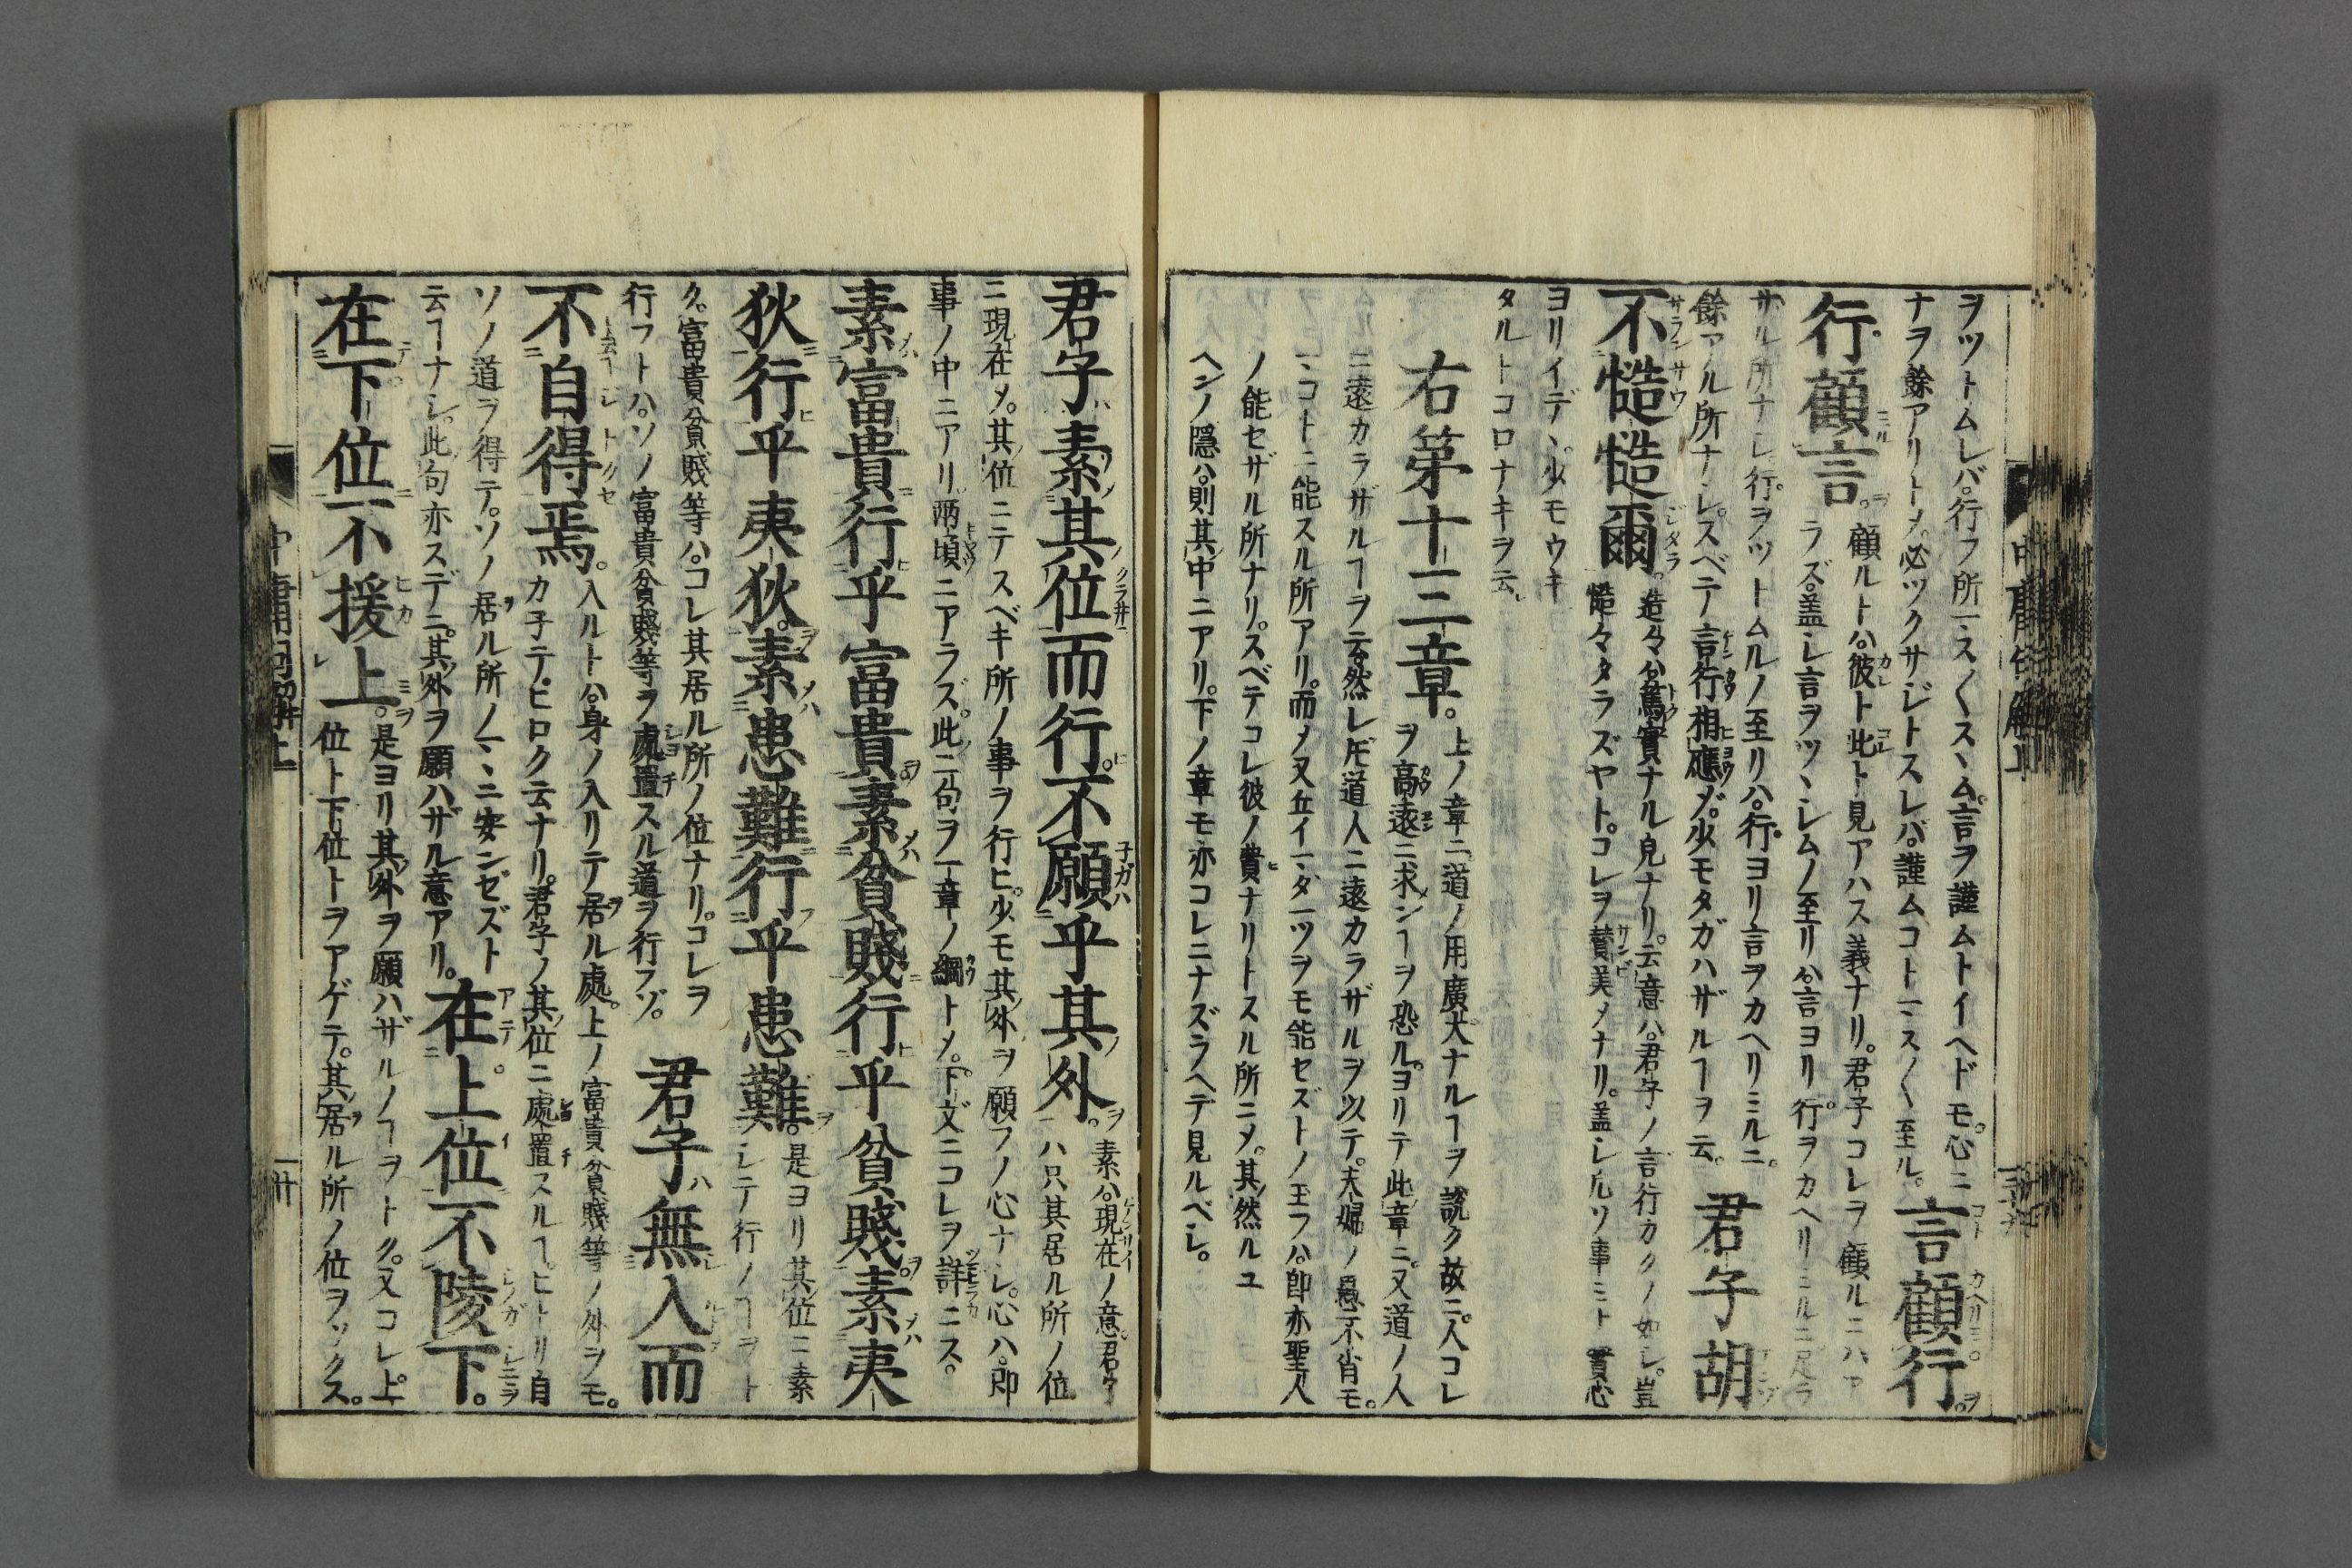 ヲツトムレバ。行フ所マスマススヽム。言ヲ謹ムトイヘドモ。心ニ
ナヲ餘アリトメ。必ツクサジトスレバ。謹ムコトマスマス至ル。
言顧行。
行顧言。
顧ルトハ。彼ト此ト見アハス義ナリ。君子コレヲ顧ルニハア
ラズ。盖シ言ヲツヽシムノ至リハ。言ヨリ行ヲカヘリミルニ足ラ
ザル所ナシ。行ヲツトムルノ至リハ。行ヨリ言ヲカヘリミルニ。
餘アル所ナシ。スベテ言行相應ゾ。少モタガハザルヿヲ云。
君子胡
不慥慥爾。
造々ハ。篤實ナル皃ナリ。云意ハ。君子ノ言行カクノ如シ。豈
慥々タラズヤト。コレヲ賛美メナリ。盖シ凡ソ事ミト實心
ヨリイデヽ。少モウキ
タルトコロナキヲ云。
右第十三章。
上ノ章ニ。道ノ用廣大ナルヿヲ説ク故ニ。人コレ
ヲ高遠ニ求ンヿヲ恐ル。ヨリテ此章ニ。又道ノ人
ニ遠カラザルヿヲ云。然レ𪜈道人ニ遠カラザルヲ以テ。夫婦ノ愚不肖モ。
マコトニ能スル所アリ。而メ又丘イマダ一ツヲモ能セズトノ玉フハ。即亦聖人
ノ能セザル所ナリ。スベテコレ彼ノ費ナリトスル所ニメ。其然ルユ
ヘンノ隱ハ。則其中ニアリ。下ノ章モ亦コレニナズラヘテ見ルベシ。
君子素其位而行。不願乎其外。
素ハ。現在ノ意。君子
ハ只其居ル所ノ位
ニ現在メ。其位ニテスベキ所ノ事ヲ行ヒ。少モ其外ヲ願フノ心ナシ。心ハ。即
事ノ中ニアリ。兩頃ニアラズ。此二句ヲ一章ノ綱トメ。下文ニコレヲ詳ニス。
素富貴行乎富貴素貧賤行乎貧賤。素夷
狄行乎夷狄。素患難行乎患難。
是ヨリ其位ニ素
シテ行ノヿヲト
ク。富貴貧賤等ハ。コレ其居ル所ノ位ナリ。コレヲ
行フトハ。ソノ富貴貧賤等ヲ處置スル道ヲ行フゾ。
君子無入而
不自得焉。
入ルトハ。身ノ入リテ居ル處。上ノ富貴貧賤等ノ外ヲモ。
カ子テ。ヒロク云ナリ。君子ノ其位ニ處置スルヿ。ヒトリ自
ソノ道ヲ得テ。ソノ居ル所ノマヽニ安ンゼズト
云ヿナシ。此句亦スデニ。其外ヲ願ハザル意アリ。
在上位不陵下。
在下位不援上。
是ヨリ其外ヲ願ハザルノヿヲトク。又コレ上
位ト下位トヲアゲテ。其居ル所ノ位ヲツクス。
中庸句解上
廿